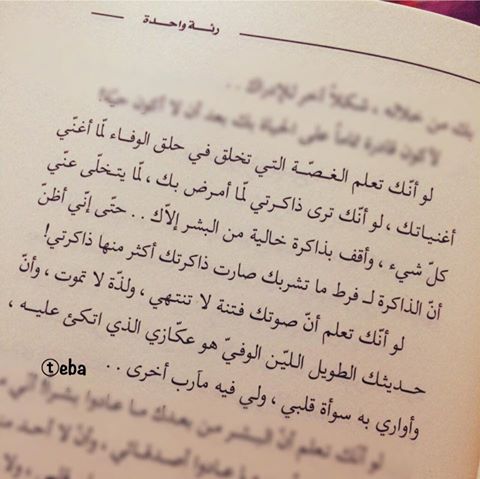 رئـة واحـدة
بك من خلاله ، شكلاً آخر للإدراك . .
لأكون قادرة تماماً على الحياة بك بعد أن لا أكون حيّة!
لو أنّك تعلم الغـصّـة التي تخلق في حلق الوفـاء لمّا أغنّي
أغنياتك ، لو أنّك ترى ذاكـرتي لمّا أمـرض بك ، لمّا يتـخلّى عنّي
كلّ شيء ، وأقف بذاكرة خالية من البشر إلاّك . . حتّى إنّي أظنّ
أنّ الذاكرة لـ فرط ما تشربك صارت ذاكرتك أكثر منها ذاكرتي!
لو أنّك تعلم أنّ صوتك فتنة لا تنتهي ، ولذّة لا تموت ، وأنّ
حـديثك الطويل الليّن الوفيّ هو عكّازي الذي اتكئ عليـه ،
وأواري به سوأة قلبي ، ولي فيه مآرب أخرى . .
teba
لو أنّك تعلم أنّ البشر من بعدك ما عـادوا بشرا! أنّي